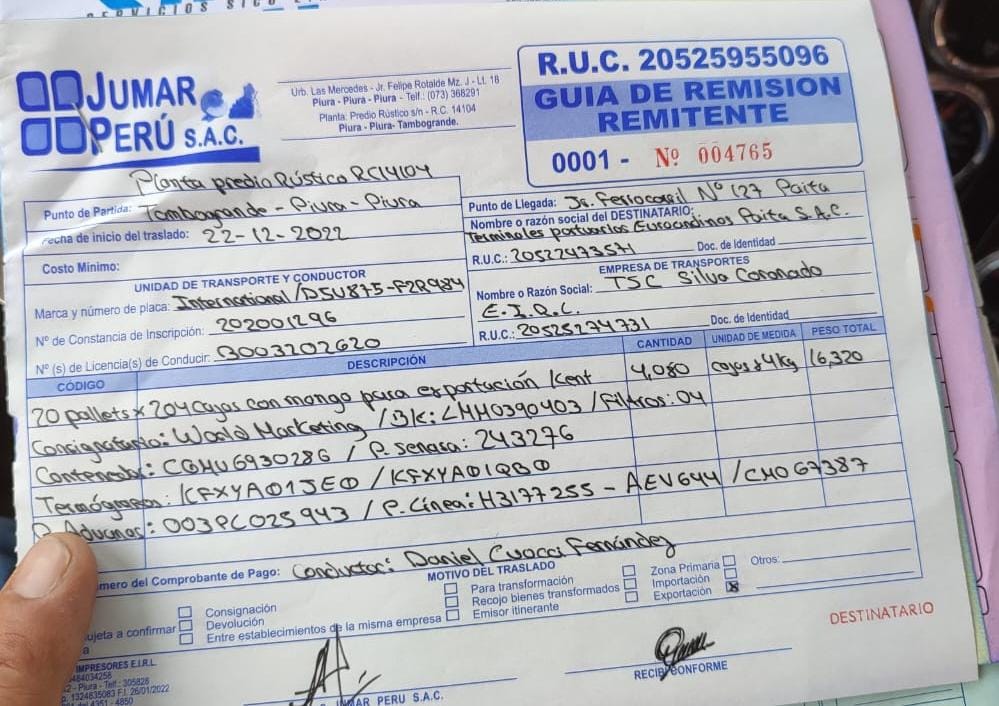 SERVICIOS
JUMAR
PERÚ S.A.C.
Urb. Las Mercedes - Jr. Felipe Rotalde Mz. J - Lt. 18
Piura - Piura - Piura - Telf.: (073) 368291
Planta: Predio Rústico s/n - R.C. 14104
Piura - Piura- Tambogrande.
R.U.C. 20525955096
GUIA DE REMISION
REMITENTE
0001 - Nº 004765
Planta predio Rústico RC14104
Punto de Partida: Tambogrande - Piura - Piura
Fecha de inicio del traslado: 22-12-2022
Costo Mínimo:
Punto de Llegada: Jr. Ferrocarril Nº 127 Paita
Nombre o razón social del DESTINATARIO:
Terminales portuarios Euroandinos Paita S.A.C.
R.U.C.: 20522473571 Doc. de Identidad
UNIDAD DE TRANSPORTE Y CONDUCTOR
Marca y número de placa: International / D5U875-F2R984
Nº de Constancia de Inscripción: 202001296
Nº (s) de Licencia(s) de Conducir: B003202620
EMPRESA DE TRANSPORTES
Nombre o Razón Social: TSC Silva Coronado
E.I.R.L.
R.U.C.: 20525274731 Doc. de Identidad
CÓDIGO DESCRIPCIÓN CANTIDAD UNIDAD DE MEDIDA PESO TOTAL
20 pallets x 204 cajas con mango para exportación Kent 4,080 cajas x 4kg 16,320
Consignatario: World Marketing / BK: LMM0390403 / Filtros: 04
Contenedor: CGMU6930286 / P. senasa: 243276
Termógrafos: KFXYA01JE0 / KFXYA01QB0
P. Aduanas: 003PC025943 / P. Línea: H3177255 - AEV644 / CMOG7387
Número del Comprobante de Pago: Conductor: Daniel Cuocci Fernández
MOTIVO DEL TRASLADO
Consignación
Devolución
Entre establecimientos de la misma empresa
Para transformación
Recojo bienes transformados
Emisor itinerante
Zona Primaria
Importación
Exportación x
Otros:
sujeta a confirmar
DESTINATARIO
JUMAR PERU S.A.C.
RECIBI CONFORME
IMPRESORES E.I.R.L.
- Piura - Telf.: 305828
1324835083 F.I. 26/01/2022
4351 - 4850